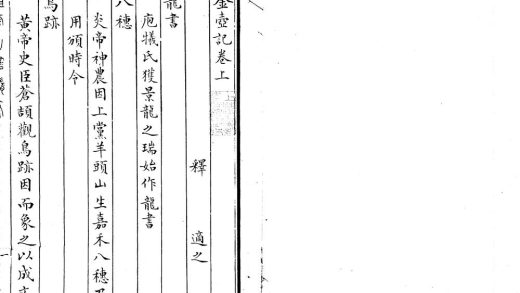 金壺記卷上
釋 適之
龍書
庖犧氏獲景龍之瑞始作龍書
八穗
炎帝神農因上黨羊頭山生嘉禾八穗乃
用頒時令
鳥跡
黃帝史臣蒼頡觀鳥跡因而象之以成文